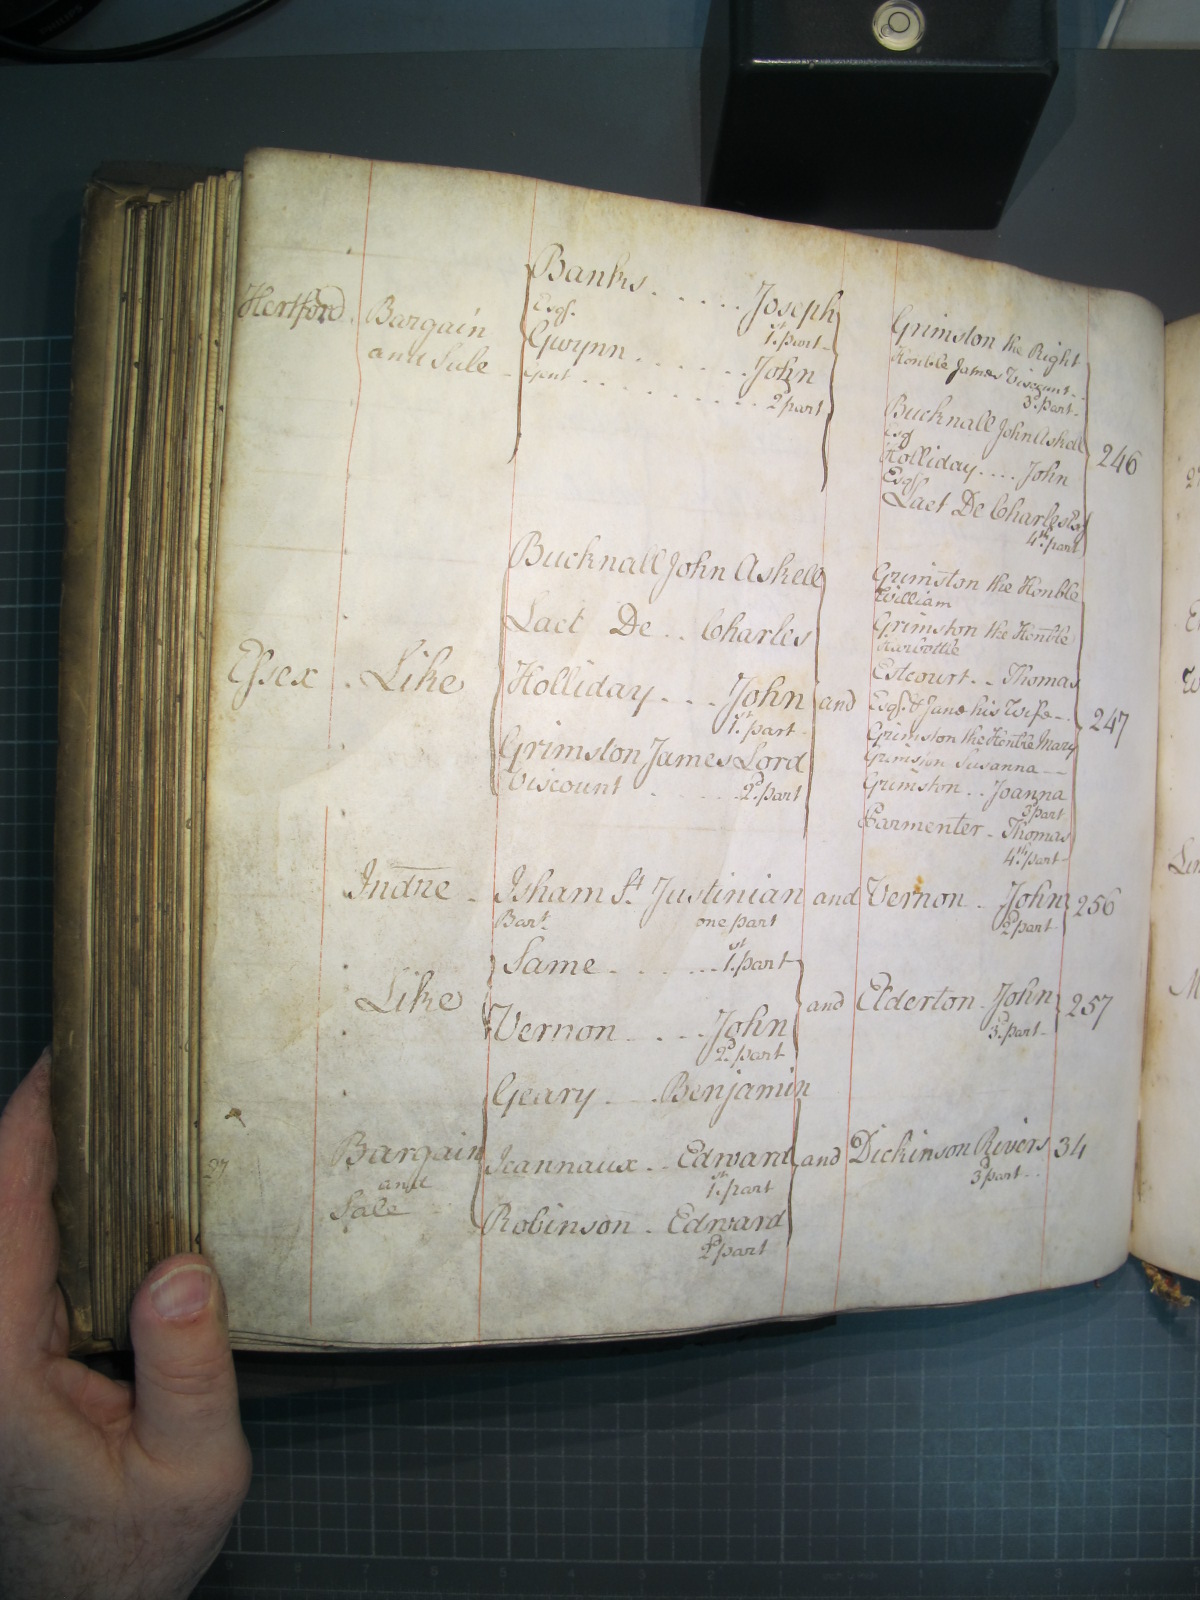 Banks . . . . . Joseph
Hertford . Bargain Esqr. 1st. part
Gwynn . . . . . . . John Grimston the Right
and Sale - Gent . . . . . . . . . . 2d part Honble James Viscount . .
3d. part
Bucknall John Askell
Esq 246
Holliday . . . . John
Esqr.
Laet De Charles Esq
4th. part
Bucknall John Askell Grimston the Honble
William
Laet De . . Charles Grimston the Honble
Harbottle
Essex . Like Holliday . . . John and Estcourt . . Thomas
1st. part Esqr. & Jane his Wife - . 247
Grimston James Lord Grimston the Honble Mary
Grimston Susanna
Viscount . . . . 2d. part Grimston . . Joanna
3 part
Parmenter - Thomas
4th. part
Indre - Isham Sr. Justinian and Vernon - John 256
Bart. one part 2d part
Same - . . . . . 1st. part
Like and Elderton - John 257
Vernon . . . . John 3d. part
2d. part
Geary - . . . Benjamin
27 Bargain Jeannaux . . Edward and Dickinson Rivers 34
and 1st. part 3d part . .
Sale Robinson - Edward
2d part